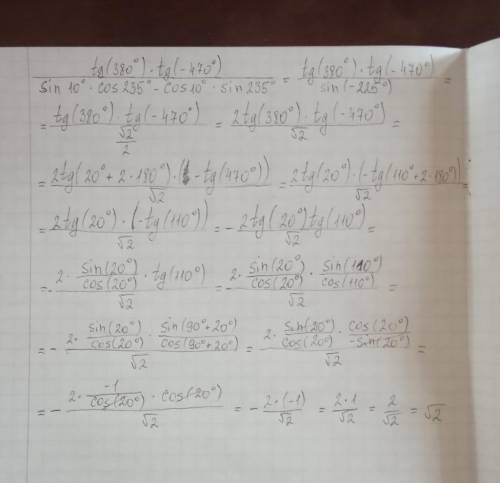 (tg(380°)·tg(-470°))/(sin 10°·cos 235° - cos 10°·sin 235°) = (tg(380°)·tg(-470°))/(sin(-225°)) =
= (tg(380°)·tg(-470°))/(√2/2) = (2tg(380°)·tg(-470°))/√2 =
= (2tg(20°+2·180°)·(-tg(470°)))/√2 = (2tg(20°)·(-tg(110°+2·180°)))/√2 =
= (2tg(20°)·(-tg(110°)))/√2 = - (2tg(20°)tg(110°))/√2 =
= - (2·sin(20°)/cos(20°)·tg(110°))/√2 = - (2·sin(20°)/cos(20°)·sin(110°)/cos(110°))/√2 =
= - (2·sin(20°)/cos(20°)·sin(90°+20°)/cos(90°+20°))/√2 = (2·sin(20°)/cos(20°)·cos(20°)/-sin(20°))/√2 =
= - (2·-1/cos(20°)·cos(20°))/√2 = - (2·(-1))/√2 = (2·1)/√2 = 2/√2 = √2